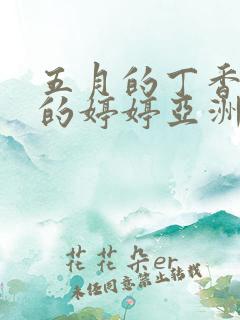 五月的丁香
的婷婷亞洲
花花朵er
未经同意禁止转载